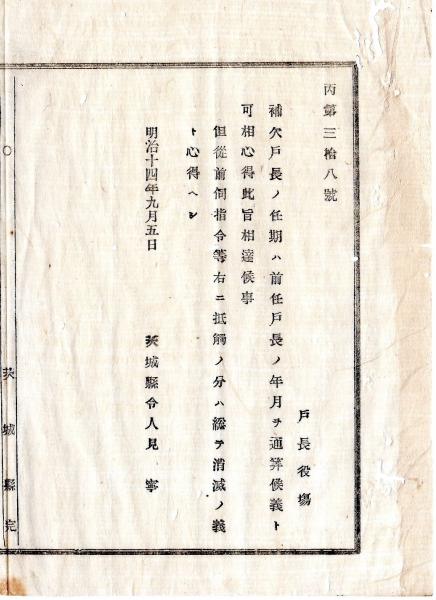 丙第三拾八號
戸長役塲
補欠戸長ノ任期ハ前任戸長ノ年月ヲ通算候義ト
可相心得此旨相達候事
但從前伺指令等右ニ抵觸ノ分ハ総テ消滅ノ義
ト心得ヘシ
明治十四年九月五日
茨城縣令人見寧
茨城縣